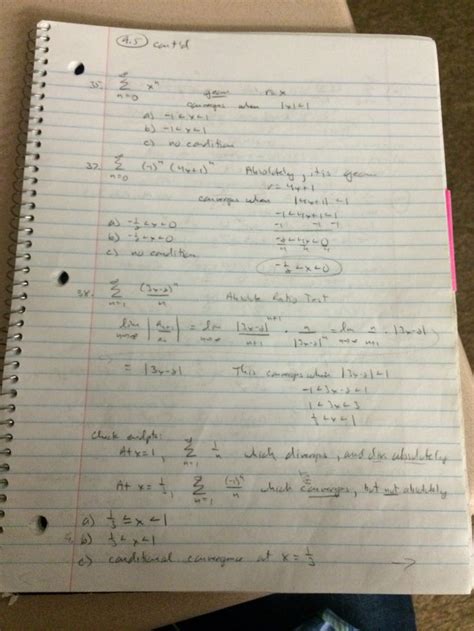 9.5 cont'd
35. ∞ Σ n=0 xⁿ geom r=x
converges when |x|<1
a) -1<x<1
b) -1<x<1
c) no condition
37. ∞ Σ n=0 (-1)ⁿ (4x+1)ⁿ Absolutely, it is geom
r = 4x+1
converges when |4x+1|<1
-1<4x+1<1
-1 -1 -1
a) -½<x<0
b) -½<x<0
c) no condition
-½<x<0
38. ∞ Σ n=1 (3x-2)ⁿ/n Absolute Ratio Test
lim n→∞ |aₙ₊₁/aₙ| = lim n→∞ |3x-2|ⁿ⁺¹/n+1 · n/|3x-2|ⁿ = lim n→∞ n/n+1 · |3x-2|
= |3x-2| This converges when |3x-2|<1
-1<3x-2<1
1<3x<3
⅓<x<1
Check endpts:
At x=1, ∞ Σ n=1 1/n which diverges, and div. absolutely
At x=⅓, ∞ Σ n=1 (-1)ⁿ/n which converges, but not absolutely
a) ⅓≤x<1
b) ⅓<x<1
c) conditional convergence at x=⅓ →